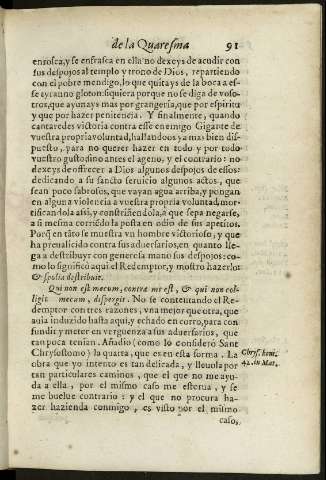 de la Quaresma 91
enrosca, y se enfrasca en ella no dexeys de acudir con
sus despojos al templo y trono de Dios, repartiendo
con el pobre mendigo, lo que quitays de la boca a es-
se tyranno gloton: siquiera porque no se diga de voso-
tros, que ayunays mas por grangeria, que por espiritu
y que por hazer penitencia. Y finalmente, quando
cantaredes victoria contra esse enemigo Gigante de
vuestra propria voluntad, hallandoos ya mas bien dis-
puesto, para no querer hazer en todo y por todo
vuestro gusto sino antes el ageno, y el contrario: no
dexeys de offrecer a Dios algunos despojos de essos:
dedicando a su sancto seruicio algunos actos, que
sean poco sabrosos, que vayan agua arriba, y pongan
en alguna violencia a vuestra propria voluntad, mor-
tificandola assi, y constriñendola, à que sepa negarse,
a si mesma corriédo la posta en odio de sus apetitos.
Porq̃ en tãto se muestra vn hombre victorioso, y que
ha preualicido contra sus aduersarios, en quanto lle-
ga a destribuyr con generosa mano sus despojos: co-
mo lo significó aqui el Redemptor, y mostro hazerlo:
& spolia distribuit.
Qui non est mecum, contra me est, & qui non col-
ligit mecum, dispergit. No se contentando el Re-
demptor con tres razones, vna mejor que otra, que
auia induzido hasta aqui, y echado en corro, para con-
fundir y meter en verguenza a sus aduersarios, que
tan poca tenian. Añadio (como lo consideró Sant
Chrysostomo) la quarta, que es en esta forma. La
Chrys. homi.
obra que yo intento es tan delicada, y lleuola por
42. in Mat.
tan particulares caminos, que el que no me ayu-
da a ella, por el mismo caso me estorua, y se
me buelue contrario: y el que no procura ha-
zer hazienda conmigo, es visto por el mismo
caso,